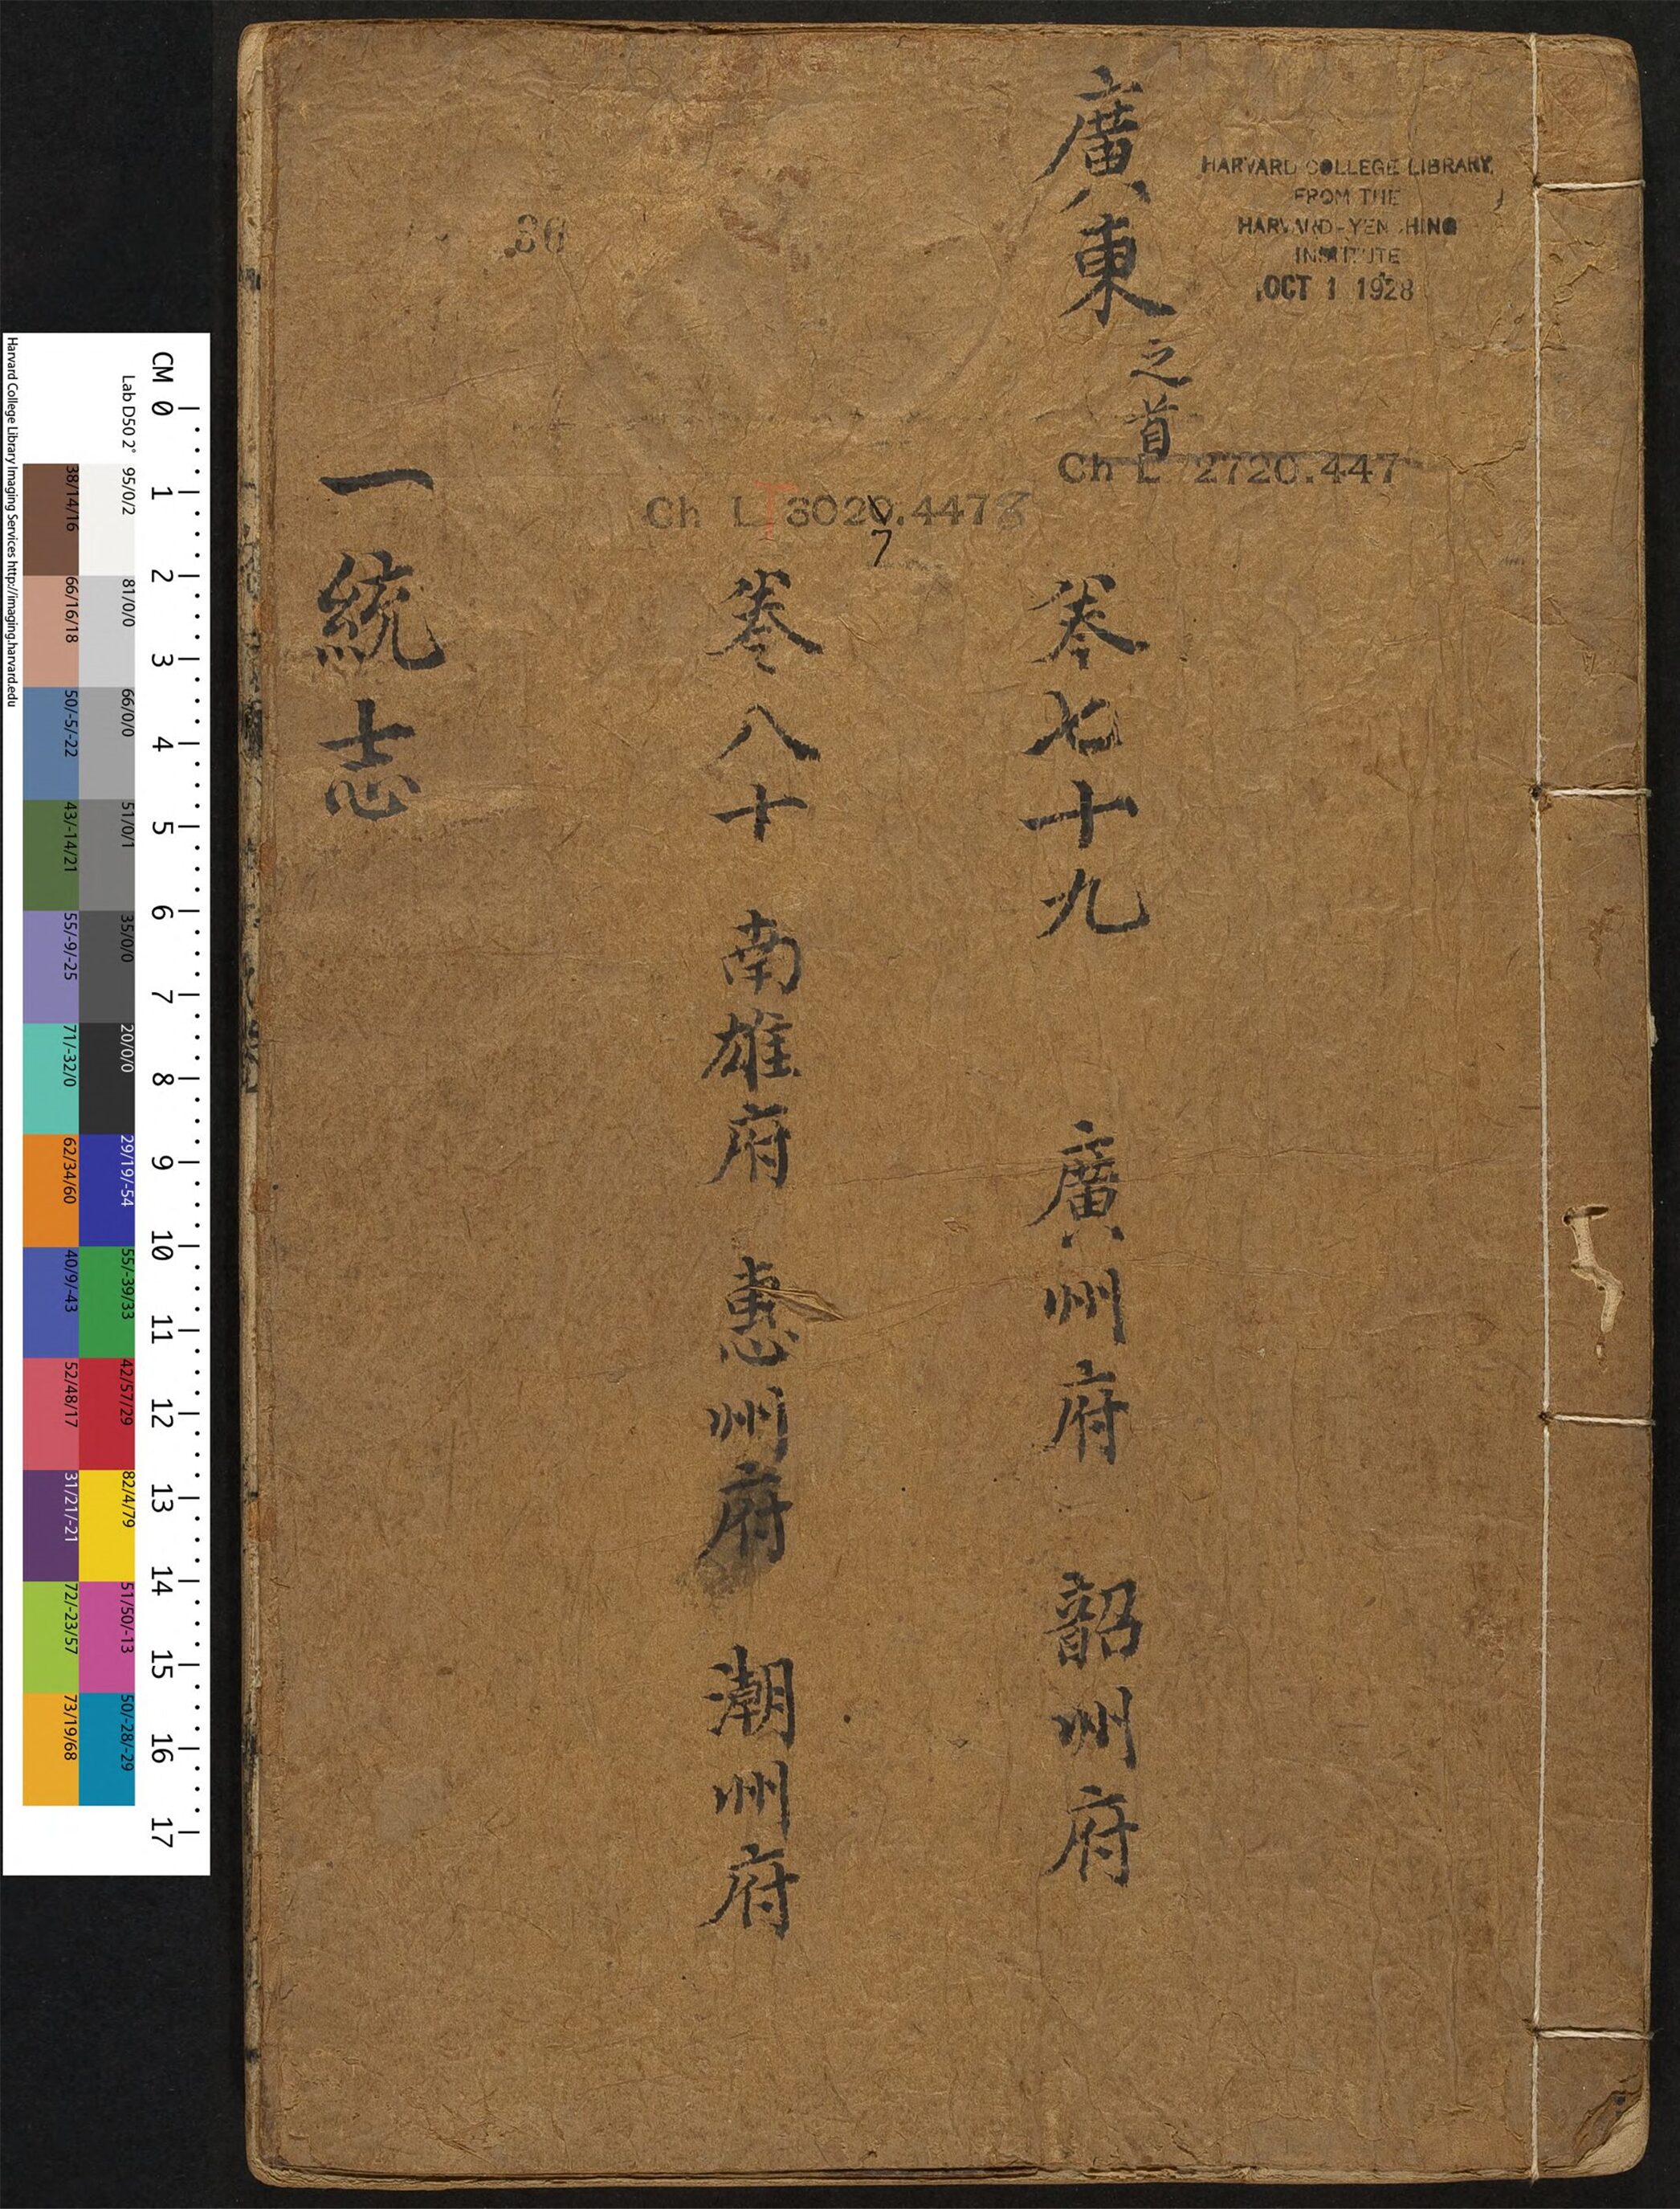 廣東之首
HARVARD COLLEGE LIBRARY
FROM THE
HARVARD-YENCHING
INSTITUTE
OCT 1 1928
Ch L 2720.447
卷七十九 廣州府 韶州府
Ch L T 3020.4473
7
卷八十 南雄府 惠州府 潮州府
30
一統志
CM 0 1 2 3 4 5 6 7 8 9 10 11 12 13 14 15 16 17
Lab D50 2° 95/0/2 81/0/0 66/0/0 51/0/1 35/0/0 20/0/0 29/19/-54 55/-39/33 42/57/29 82/4/79 51/50/-13 50/-28/-29
38/14/16 66/16/18 50/-5/-22 43/-14/21 55/-9/-25 71/-32/0 62/34/60 40/9/-43 52/48/17 31/21/-21 72/-23/57 73/19/68
Harvard College Library Imaging Services http://imaging.harvard.edu